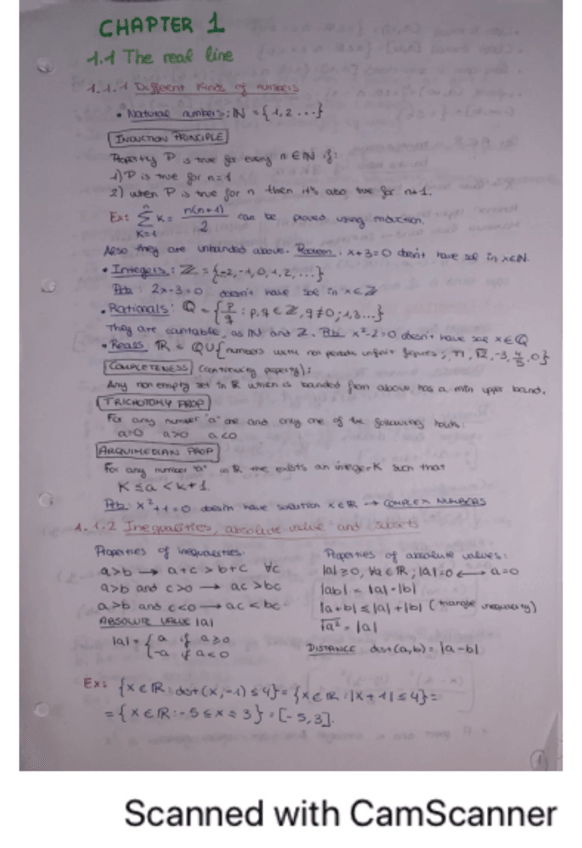 CHAPTER 1
1.1 The real line
1.1.1 Different kinds of numbers
• Natural numbers: ℕ = {1, 2 ...}
INDUCTION PRINCIPLE
Property P is true for every n ∈ ℕ if:
1) P is true for n=1
2) when P is true for n then it's also true for n+1.
Ex: ∑ K=1 n K = n(n+1)/2 can be proved using induction.
Also they are unbounded above. Problem: x+3=0 doesn't have sol in x∈ℕ.
• Integers: ℤ = {-2, -1, 0, 1, 2, ...}
Pb: 2x-3=0 doesn't have sol in x∈ℤ
• Rationals: ℚ = {p/q : p, q ∈ ℤ, q≠0, 1, 3...}
They are countable, as ℕ and ℤ. Pb: x²-2=0 doesn't have sol x∈ℚ
• Reals: ℝ = ℚ∪{numbers with non infinite figures; π, √2, -3, 4/5, 0}
COMPLETENESS (continuity property):
Any non empty set in ℝ which is bounded from above has a min upper bound.
TRICHOTOMY PROP
For any number "a" one and only one of the following holds:
a=0 a>0 a<0
ARQUIMEDIAN PROP
For any number "a" in ℝ exists an integer K such that
K ≤ a < K+1
Pb: x²+1=0 doesn't have solution x∈ℝ → COMPLEX NUMBERS
1.1.2 Inequalities, absolute value and subsets
Properties of inequalities:
a>b → a+c > b+c ∀c
a>b and c>0 → ac > bc
a>b and c<0 → ac < bc
ABSOLUTE VALUE |a|
|a| = { a if a≥0
{ -a if a<0
Properties of absolute values:
|a| ≥ 0, ∀a∈ℝ; |a|=0 ⟷ a=0
|ab| = |a|·|b|
|a+b| ≤ |a|+|b| (triangle inequality)
√a² = |a|
DISTANCE dist(a,b) = |a-b|
Ex: {x∈ℝ: dist(x,-1) ≤ 4} = {x∈ℝ: |x+1| ≤ 4} =
= {x∈ℝ: -5 ≤ x ≤ 3} = [-5,3].
1
Scanned with CamScanner